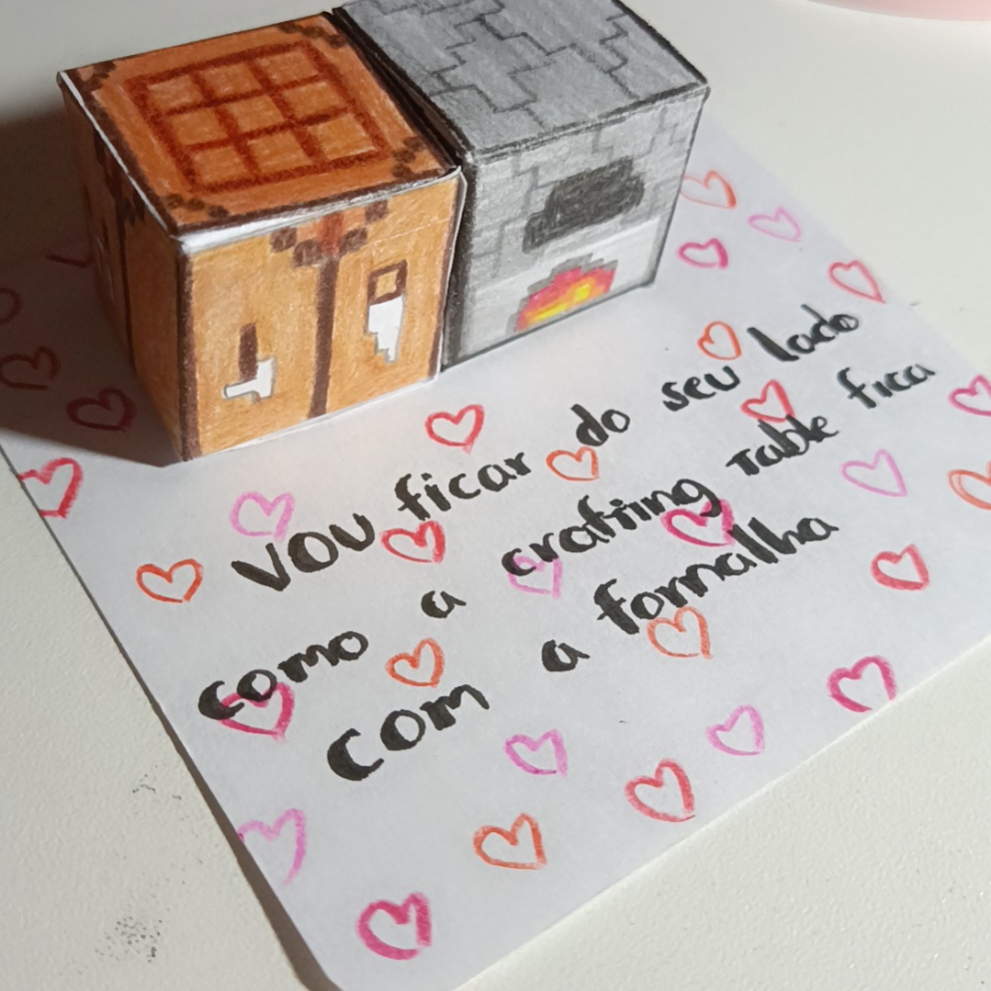 VOU ficar do seu lado
como a crafting Table fica
COM a fornalha